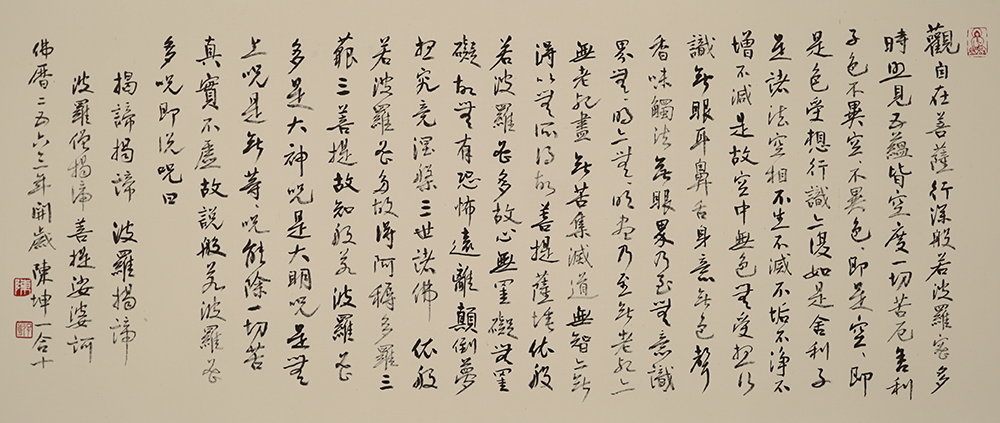 觀自在菩薩行深般若波羅密多
時照見五蘊皆空度一切苦厄舍利
子色不異空不異色即是空、即
是色受想行識亦復如是舍利子
是諸法空相不生不滅不垢不淨不
增不減是故空中無色無受想行
識無眼耳鼻舌身意無色聲
香味觸法無眼界乃至無意識
界無、明亦無明盡乃至無老死亦
無老死盡無苦集滅道無智亦無
得以無所得故菩提薩埵依般
若波羅密多故心無罣礙無罣
礙故無有恐怖遠離顛倒夢
想究竟涅槃三世諸佛依般
若波羅密多故得阿耨多羅三
藐三菩提故知般若波羅密
多是大神呪是大明呪是無
上呪是無等、呪能除一切苦
真實不虛故說般若波羅密
多呪即说呪曰
揭諦揭諦 波羅揭諦
波羅僧揭諦 菩提娑婆訶
佛曆二五六三年開歲陳坤一合十